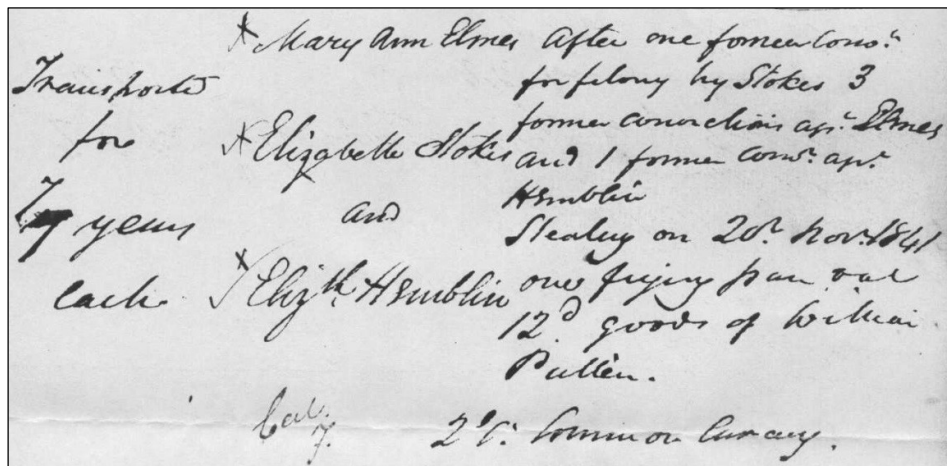 Transported
for
7 years
each
x Mary Ann Elmes
x Elizabeth Stokes
and
x Elizth. Hamblin
After one former conv.n
for felony by Stokes 3
former convictions agt. Elmes
and 1 former conv.n agt.
Hamblin
Stealing on 20th Nov.r 1841
one frying pan val
12d. goods of William
Pullen.
Cal. 7.
2d C. Common Larceny.